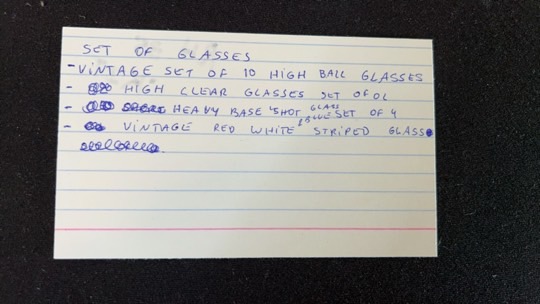 SET OF GLASSES
- VINTAGE SET OF 10 HIGH BALL GLASSES
- HIGH CLEAR GLASSES SET OF 02
- HEAVY BASE SHOT GLASS SET OF 4
- VINTAGE RED WHITE & BLUE STRIPED GLASS